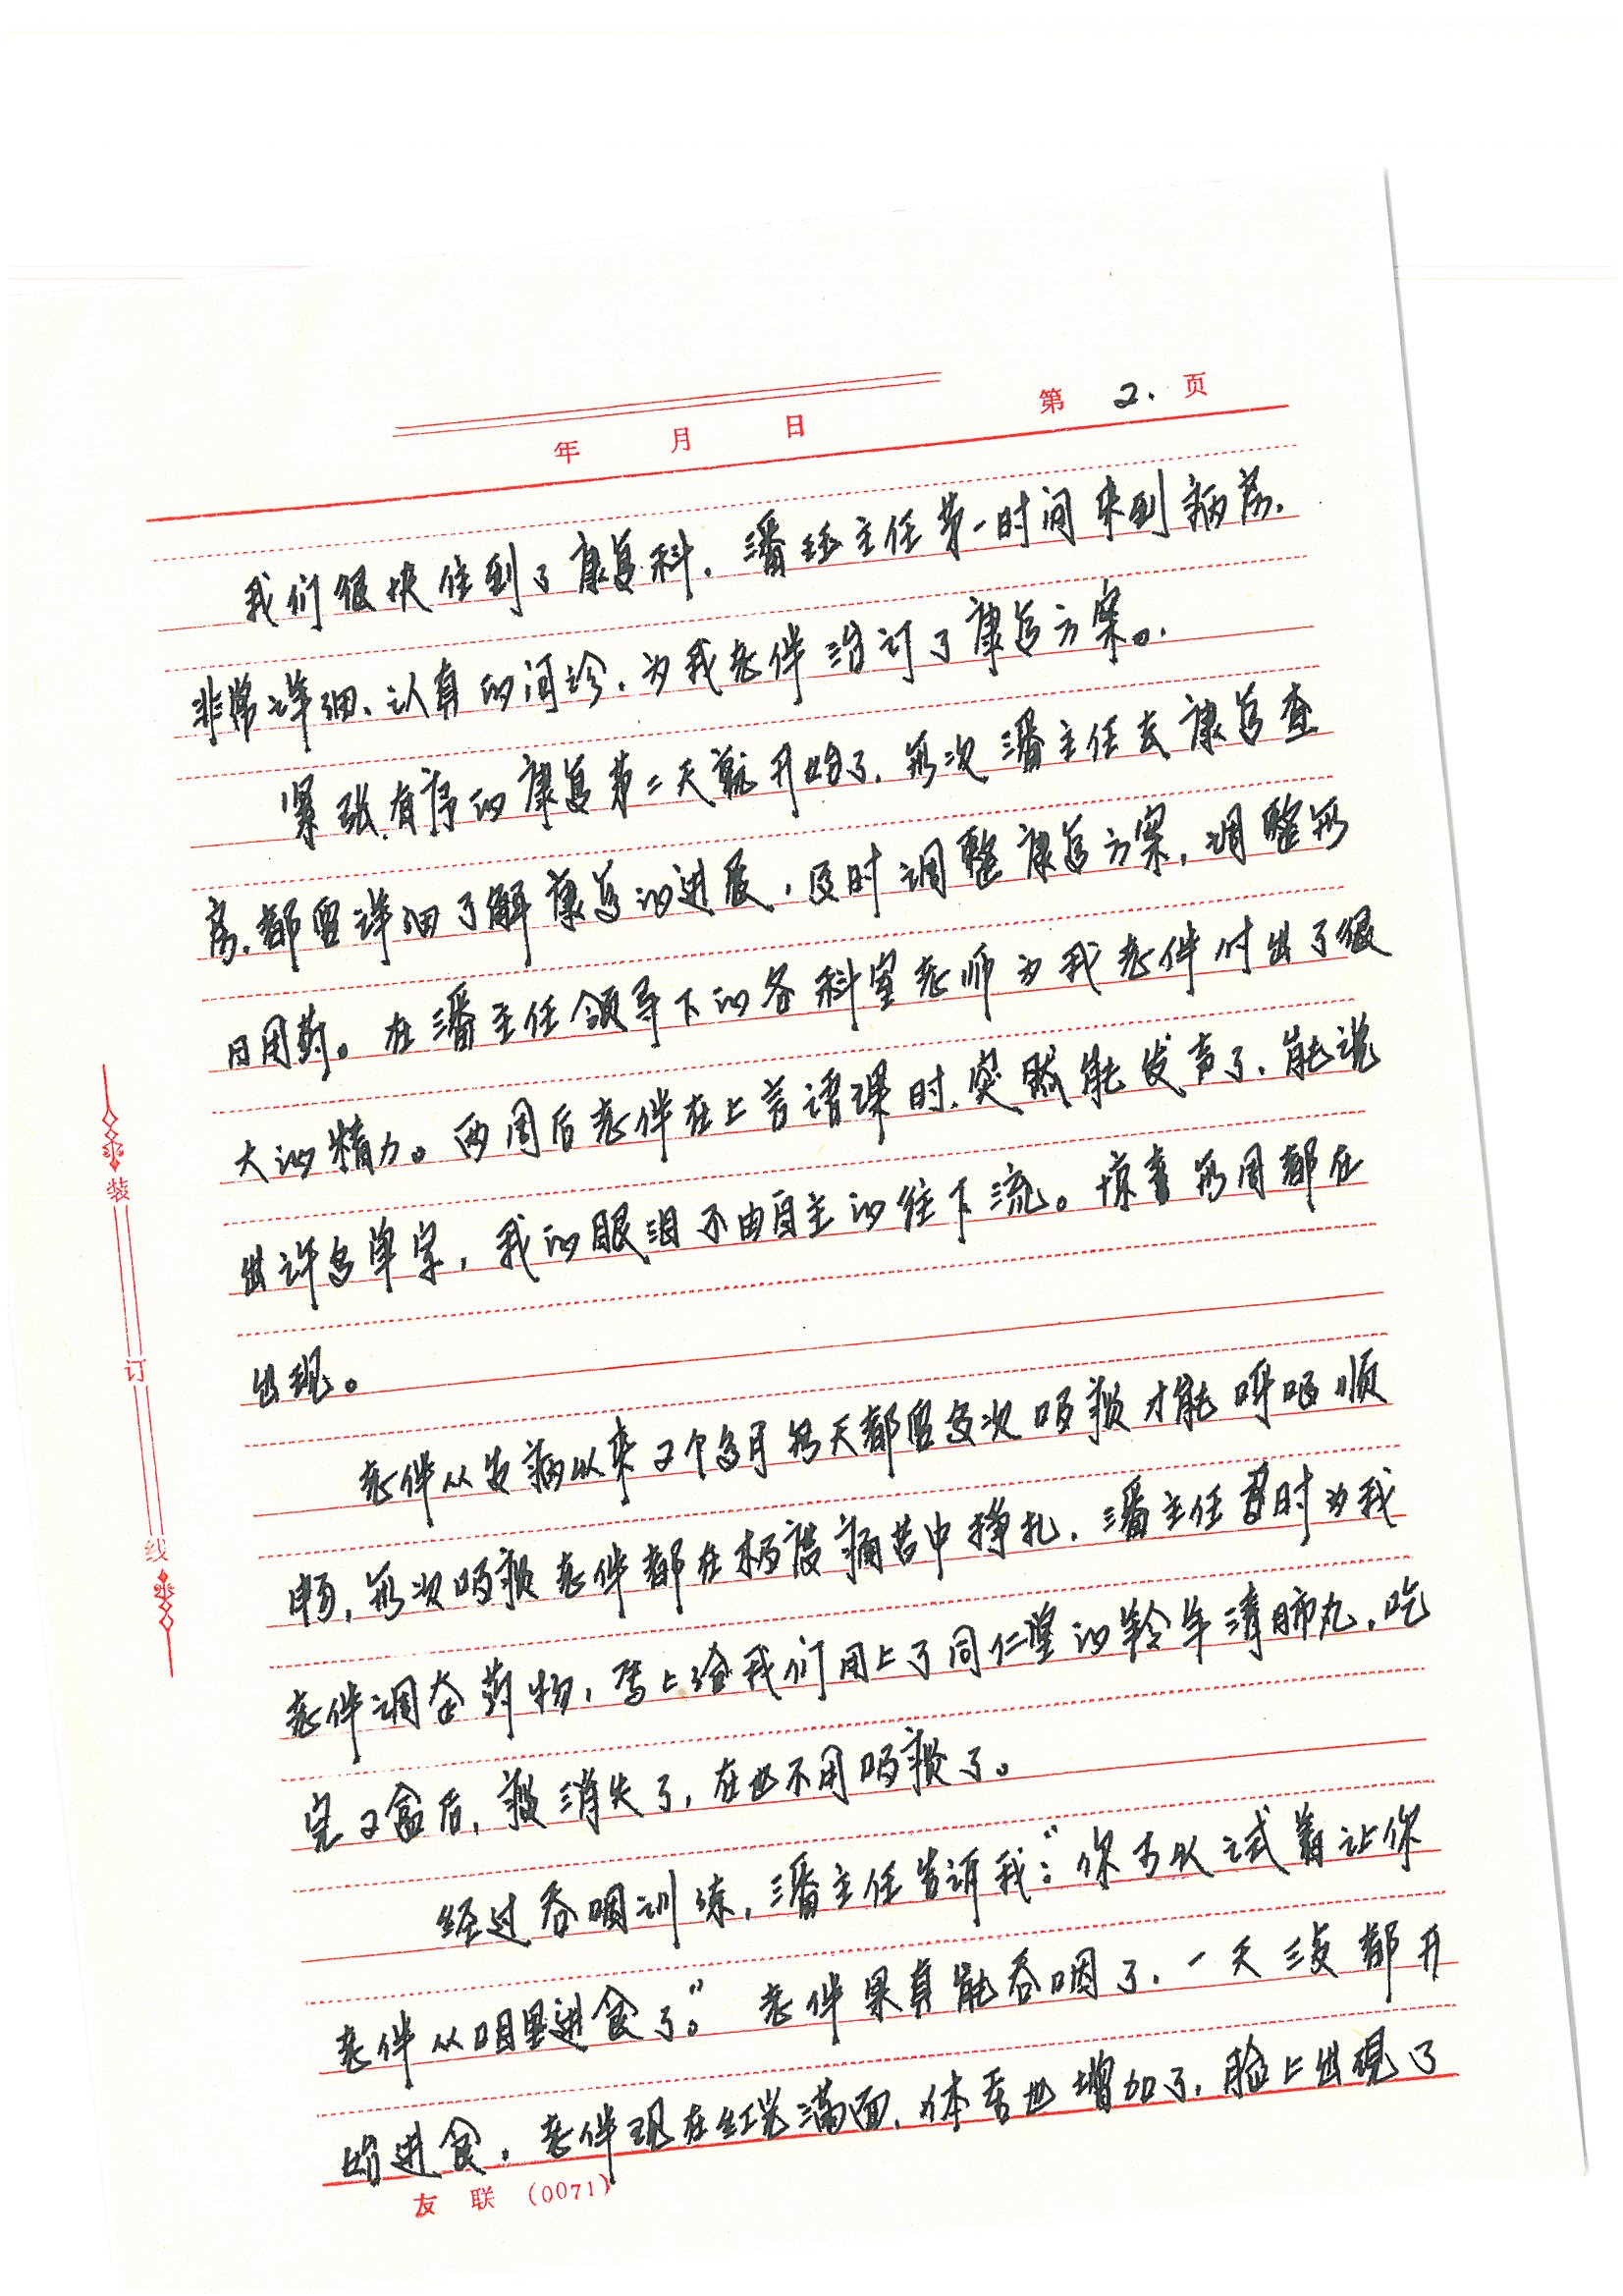 年 月 日 第 2. 页
我们很快住到了康复科.潘钰主任第一时间来到病房.
非常详细、认真的问诊.为我老伴治订了康复方案。
紧张有序的康复第二天就开始了.每次潘主任去康复查
房.都会详细了解康复的进展,及时调整康复方案,调整每
日用药。在潘主任领导下的各科室老师为我老伴付出了很
大的精力。两周后老伴在上言语课时.突然能发声了.能说
出许多单字,我的眼泪不由自主的往下流。惊喜每周都在
出现。
老伴从发病以来2个多月每天都会多次吸痰才能呼吸顺
畅,每次吸痰老伴都在极度痛苦中挣扎.潘主任及时为我
老伴调合药物,马上给我们用上了同仁堂的羚羊清肺丸,吃
完2盒后,痰消失了,在也不用吸痰了。
经过吞咽训练,潘主任告诉我:“你可以试着让你
老伴从口里进食了。”老伴果真能吞咽了.一天三多都开
始进食.老伴现在红光满面.体重也增加了.脸上出现了
装订线
友联(0071)